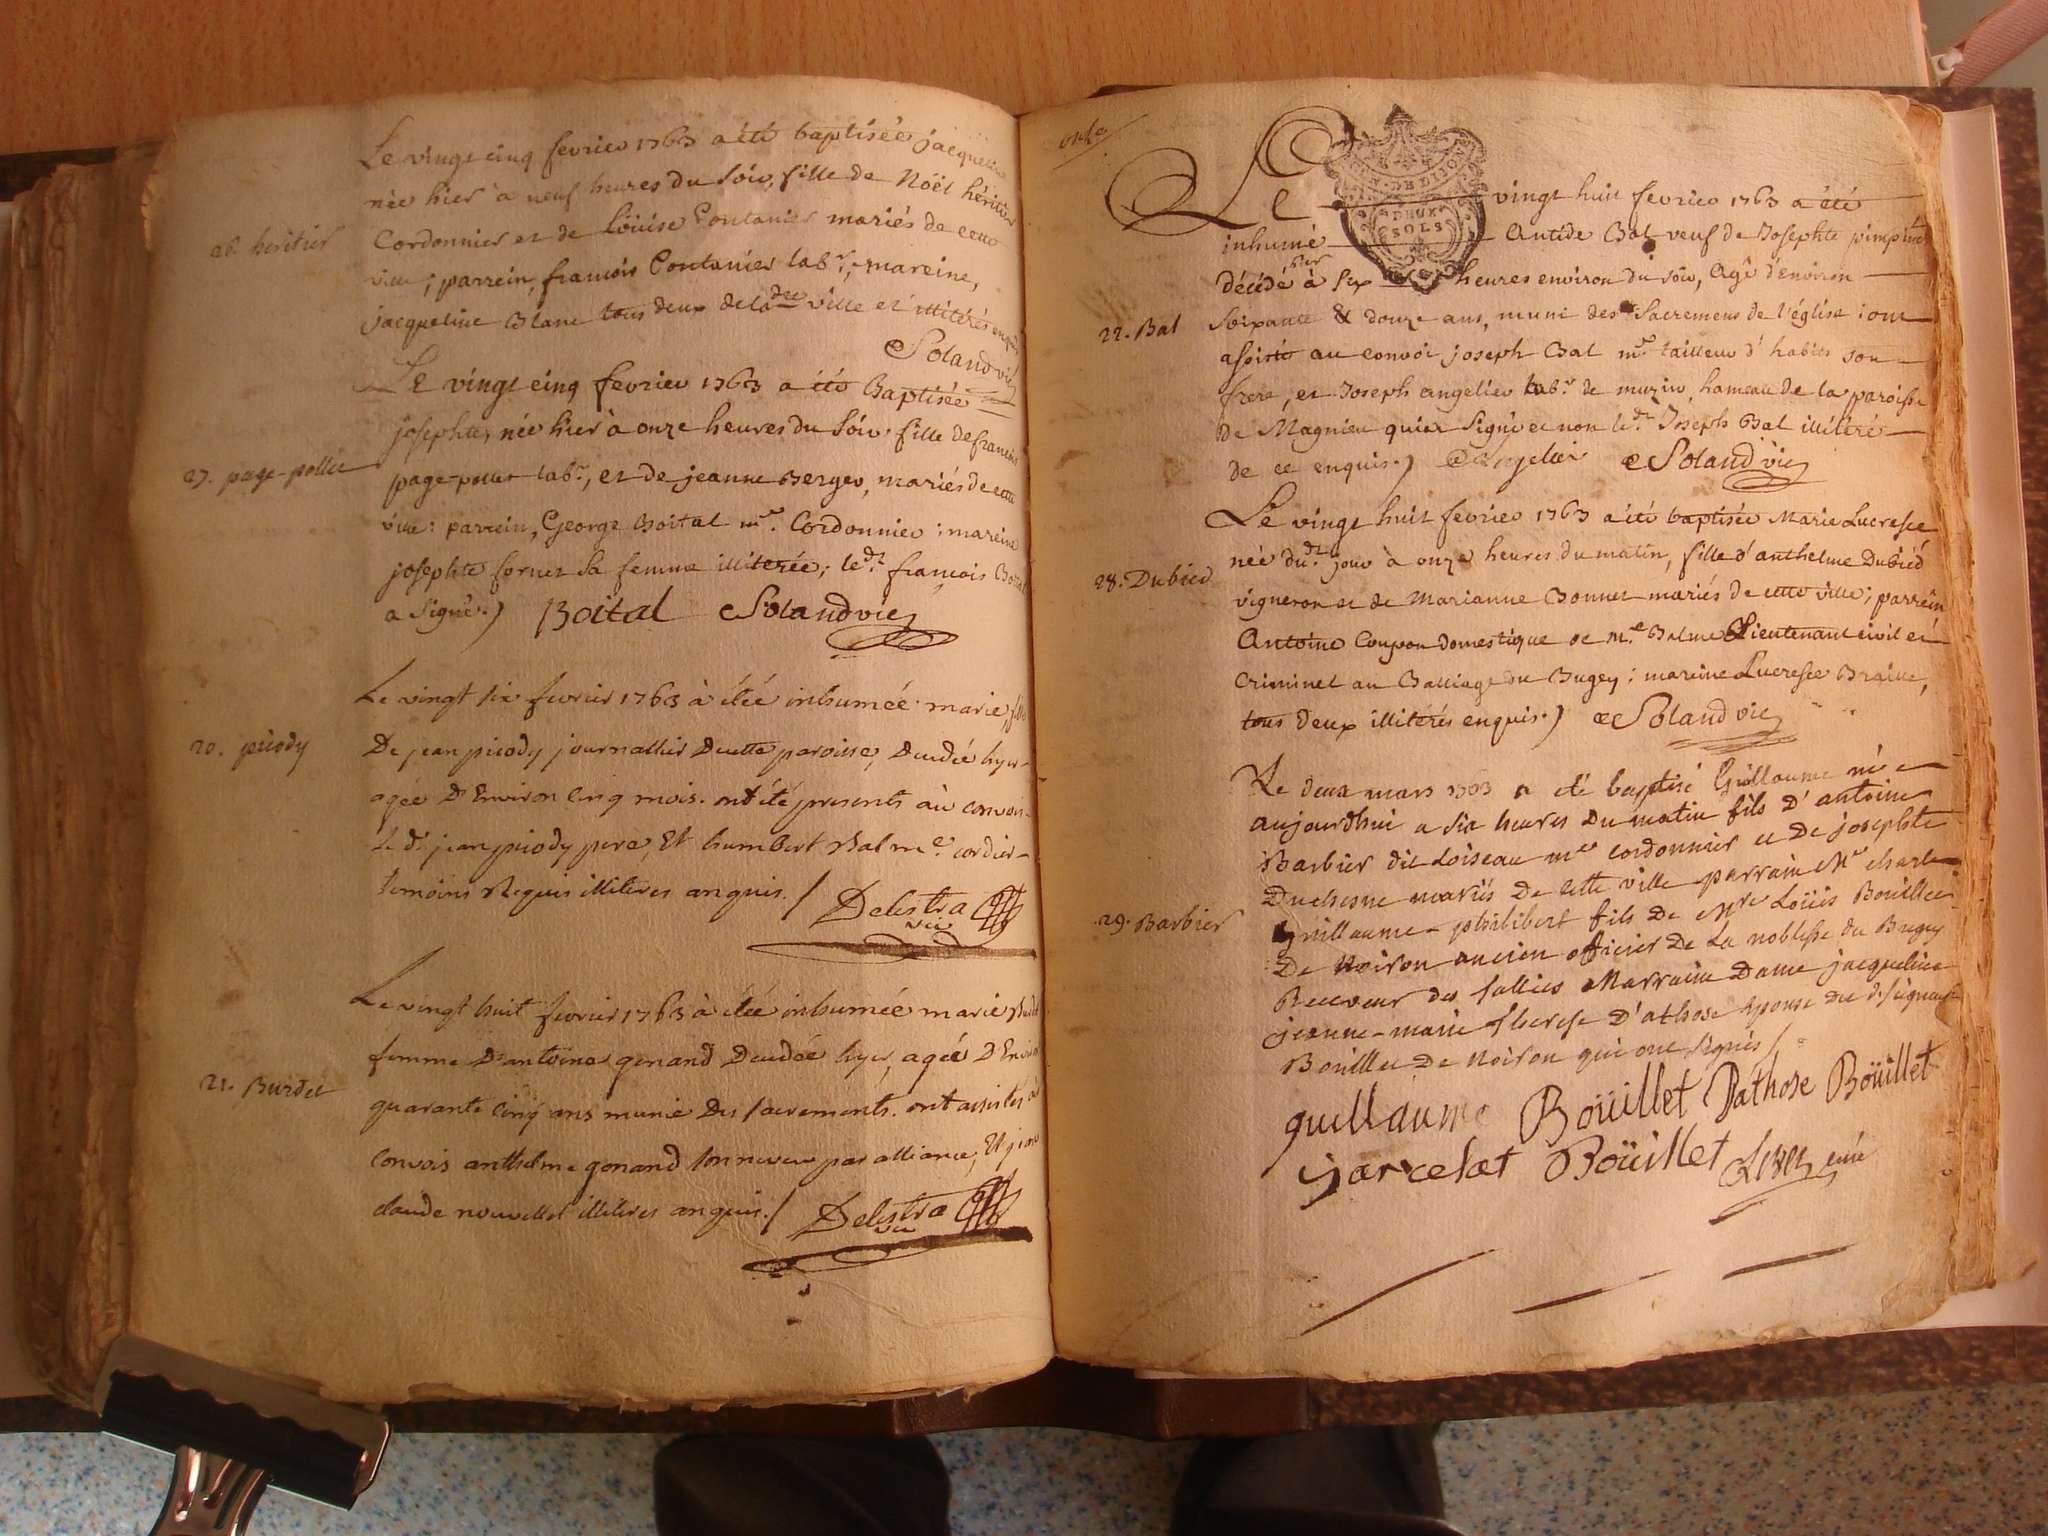 Le vingt cinq fevrier 1763 a été baptisée jacqueline
née hier à neuf heures du soir, fille de Noël héritier
26. heritier
Cordonnier et de Louise Contanier mariés de cette
ville; parrein, francois Contanier labr, mareine,
jacqueline Blanc tous deux de ladte ville et illitérés enquis
Soland vic
Le vingt cinq fevrier 1763 a été Baptisée
josephte, née hier à onze heures du soir fille de francois
27. page-pollet
page-pollet labr, et de jeanne Berger, mariés de cette
ville: parrein, George Boital me. Cordonnier; mareine
josephte fornet sa femme illiterée; ledt francois Boital
a signé.) Boital Soland vic
Le vingt six fevrier 1763 à étée inhumée marie, fille
20. picody
De jean picody journallier de cette paroisse, decedée hyer
agée D'Environ cinq mois. ont été presents au convoi
Le dt jean picody pere, Et humbert Balme cordier
temoins Requis illiteres anquis. / Delestra
vic
Le vingt huit fevrier 1763 à étée inhumée marie Burdet
femme D'antoine gonand Decedée hyer, agée D'Environ
21. Burdet
quarante cinq ans munie Des sacrements. ont assistés au
convois anthelme gonand son neveu par alliance, Et jean
claude nouvellet illiteres anquis. / Delestra
vic
onze
Le vingt huit fevrier 1763 a été
DEUX SOLS
inhumé Antide Bal veuf de Josephte
décédé hier à six heures environ du soir, Agé d'environ
22. Bal
Soixante & douze ans, muni des Sacremens de l'église: ont
assisté au convoi joseph Bal me tailleur d'habits son
frere, et Joseph angelier labr de muzin, hameau de la paroisse
De Magnieu qui a signé et non ledt Joseph Bal illitéré
de ce enquis.) Angelier Soland vic
Le vingt huit fevrier 1763 a été baptisée Marie Lucresse
née dudt jour à onze heures du matin, fille d'anthelme Dubiéd
28. Dubied
vigneron et de Marianne Bonnet mariés de cette ville; parrein
Antoine Coupon domestique de me. Balme Lieutenant civil et
Criminel au Balliage du Bugey; mareine Lucresse Braille,
tous deux illitérés enquis.) Soland vic
Le deux mars 1763 a eté baptisé Guillaume né
aujourdhui a six heures Du matin fils D'antoine
Barbier dit Loiseau me cordonnier et De josephte
Duchesne mariés De cette ville parrain Mr charle
29. Barbier
guillaume philibert fils De Mre Loüis Boüillet
De Noiron ancien officier De La noblesse du Bugey
Receveur des salles Marraine Dame jacqueline
jeanne-marie therese D'athose epouse du dt seigneur
Bouillet De Noiron qui ont signés /
guillaume Boüillet Dathose Boüillet
jarcelat Boüillet curé